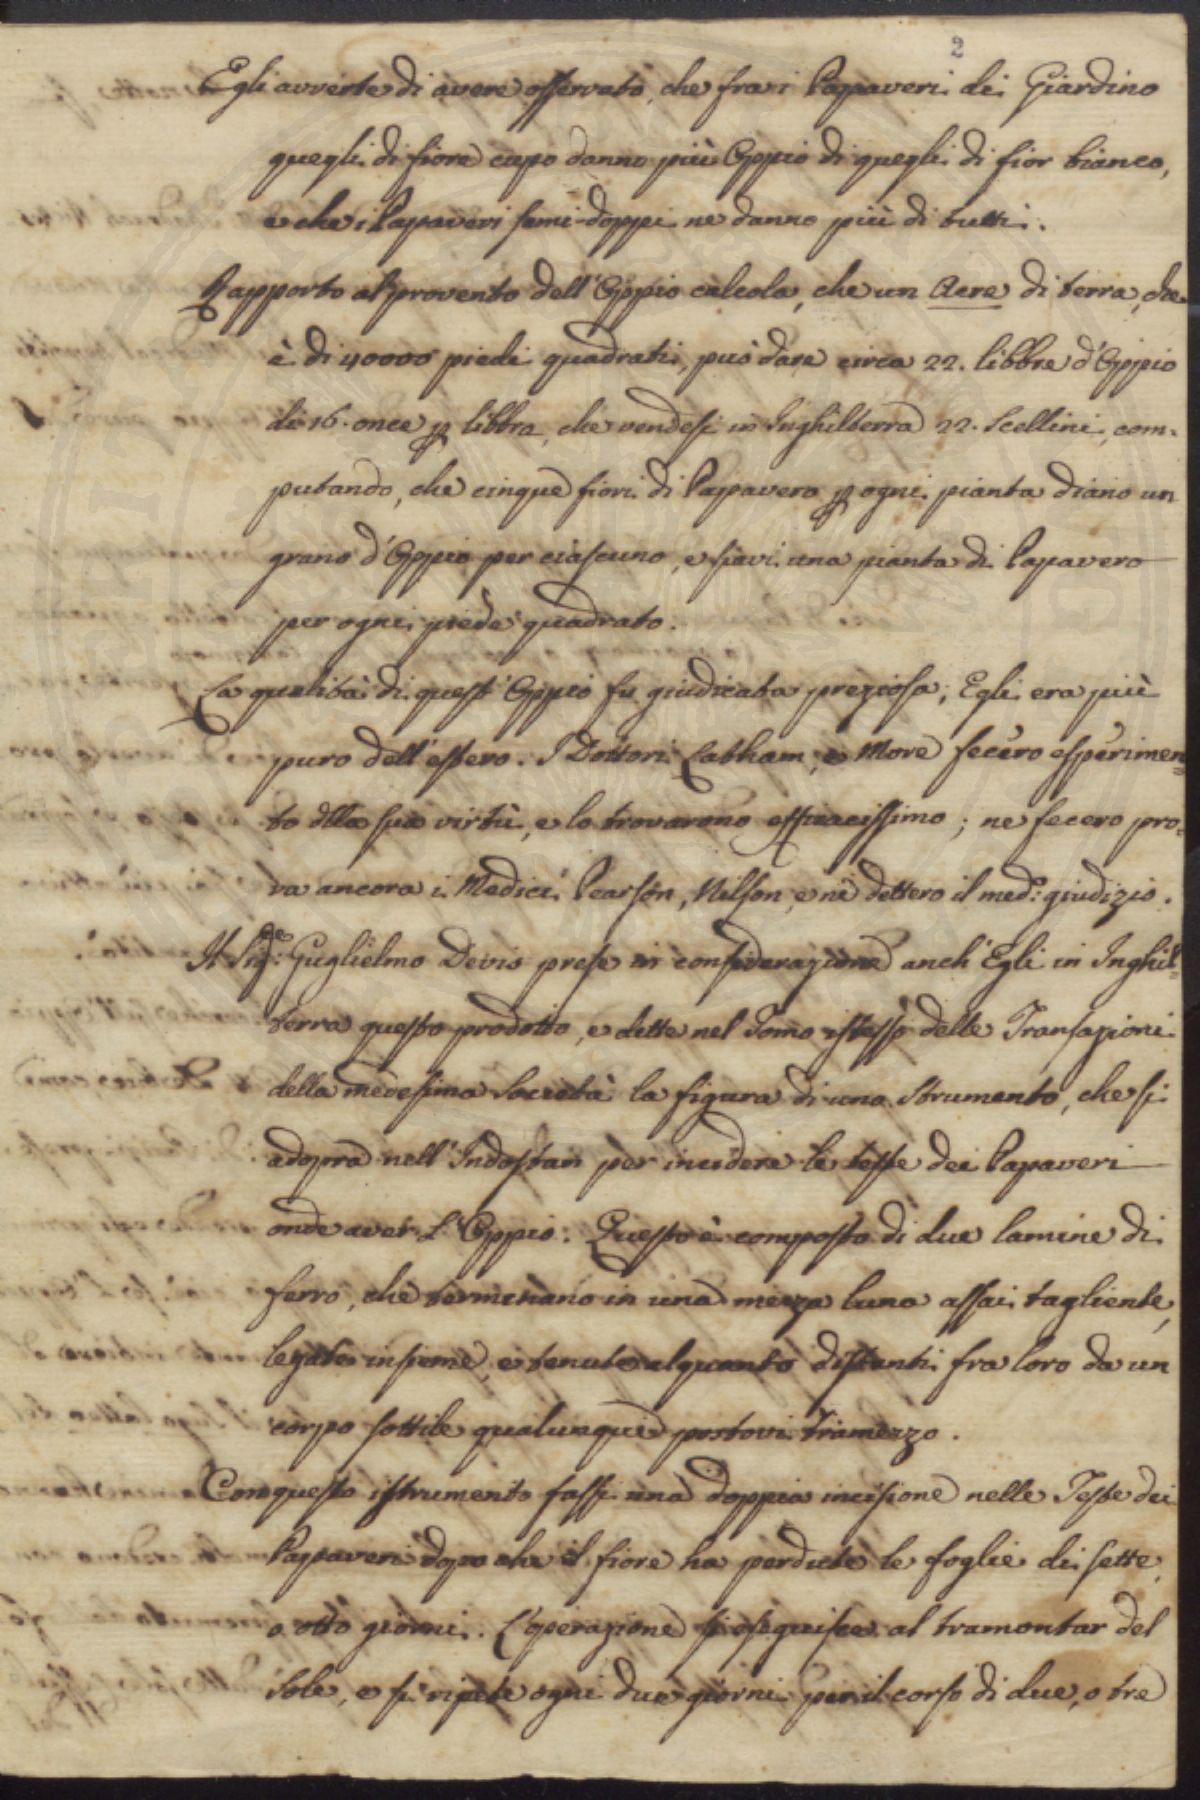 2
Egli avverte di avere osservato, che fra i Papaveri di Giardino
quegli di fiore cupo danno più Oppio di quegli di fior bianco,
e che i Papaveri semi-doppi ne danno più di tutti.
Rapporto al provento dell'Oppio calcola, che un Acre di terra, che
è di 40000 piedi quadrati, può dare circa 22. libbre d'Oppio
di 16. once p libbra, che vendesi in Inghilterra 22. Scellini, com-
putando, che cinque fiori di Papavero p ogni pianta diano un
grano d'Oppio per ciascuno, e siavi una pianta di Papavero
per ogni piede quadrato.
La qualità di quest'Oppio fu giudicata preziosa; Egli era più
puro dell'estero. I Dottori Latham, e More fecero esperimen-
to dlla sua virtù, e lo trovarono efficacissimo; ne fecero pro-
va ancora i Medici Pearson, Wilson, e ne dettero il med: giudizio.
Il Sig.re Guglielmo Devis prese in considerazione anch'Egli in Inghil-
terra questo prodotto, e dette nel Tomo istesso delle Transazioni
della medesima Società la figura di uno Strumento, che si
adopra nell'Indostan per incidere le teste dei Papaveri
onde aver L'Oppio. Questo è composto di due lamine di
ferro, che terminano in una mezza luna assai tagliente,
legate insieme, e tenute alquanto distanti fra loro da un
corpo sottile qualunque postovi tramezzo.
Con questo istrumento fassi una doppia incisione nelle Teste dei
Papaveri dopo che il fiore ha perdute le foglie di sette,
o otto giorni. L'operazione si eseguisce al tramontar del
Sole, e si ripete ogni due giorni per il corso di due, o tre